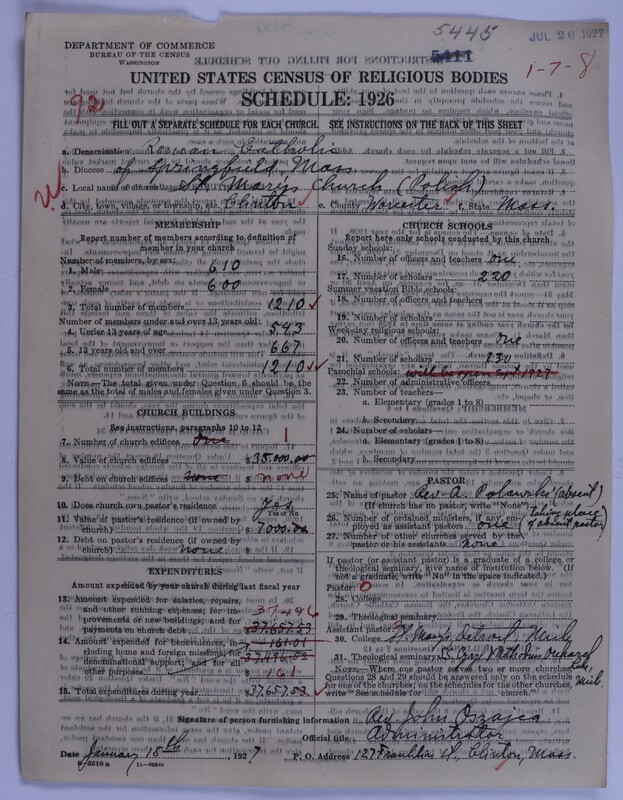 5445
JUL 26 1927
DEPARTMENT OF COMMERCE
BUREAU OF THE CENSUS
WASHINGTON
5411
1-7-8
UNITED STATES CENSUS OF RELIGIOUS BODIES
SCHEDULE: 1926
92
FILL OUT A SEPARATE SCHEDULE FOR EACH CHURCH. SEE INSTRUCTIONS ON THE BACK OF THIS SHEET
a. Denomination Roman Catholic
b. Diocese of Springfield, Mass
c. Local name of church St. Mary's Church (Polish)
d. City, town, village, or township, etc. Clinton e. County Worcester f. State Mass.
MEMBERSHIP
Report number of members according to definition of
member in your church
Number of members, by sex:
1. Male 610
2. Female 600
3. Total number of members 1210
Number of members under and over 13 years old:
4. Under 13 years of age 543
5. 13 years old and over 667
6. Total number of members 1210
NOTE.—The total given under Question 6 should be the
same as the total of males and females given under Question 3.
CHURCH BUILDINGS
See instructions, paragraphs 10 to 12
7. Number of church edifices One 1
8. Value of church edifices $35,000.00
9. Debt on church edifices none $ none
10. Does church own pastor's residence? Yes
Yes or No
11. Value of pastor's residence (if owned by
church) $7000.00
12. Debt on pastor's residence (if owned by
church) none $
EXPENDITURES
Amount expended by your church during last fiscal year
13. Amount expended for salaries, repairs,
and other running expenses; for im-
provements or new buildings; and for
payments on church debt 37,496 $37,657.53
14. Amount expended for benevolences, in-
cluding home and foreign missions; for
denominational support; and for all
other purposes 161.01 37,496.52 $ 161
15. Total expenditures during year $37,657.53
CHURCH SCHOOLS
Report here only schools conducted by this church
Sunday schools:
16. Number of officers and teachers one
17. Number of scholars 220
Summer vacation Bible schools:
18. Number of officers and teachers
19. Number of scholars
Week-day religious schools:
20. Number of officers and teachers one
21. Number of scholars 230
Parochial schools: will Sept 1927
22. Number of administrative officers
23. Number of teachers—
a. Elementary (grades 1 to 8)
b. Secondary
24. Number of scholars—
a. Elementary (grades 1 to 8)
b. Secondary
PASTOR
25. Name of pastor Rev. A. (absent)
(If church has no pastor, write "None")
26. Number of ordained ministers, if any, em-
ployed as assistant pastors one (Taking place of absent pastor)
27. Number of other churches served by the
pastor or his assistant None
If pastor (or assistant pastor) is a graduate of a college or
theological seminary, give name of institution below. (If
not a graduate, write "No" in the space indicated.)
Pastor: 0
28. College
29. Theological seminary
Assistant pastor:
30. College St. Mary's, Detroit, Mich
31. Theological seminary Orchard Lake, Mich
NOTE.—Where one pastor served two or more churches,
Questions 28 and 29 should be answered only on the schedule
for one of the churches; on the schedules for the other churches,
write "See schedule for church."
Signature of person furnishing information Rev. John Oszajca
Official title Administrator
Date January 18th, 1927 P. O. Address 127 Franklin St., Clinton, Mass.
8-5518a 11-9084